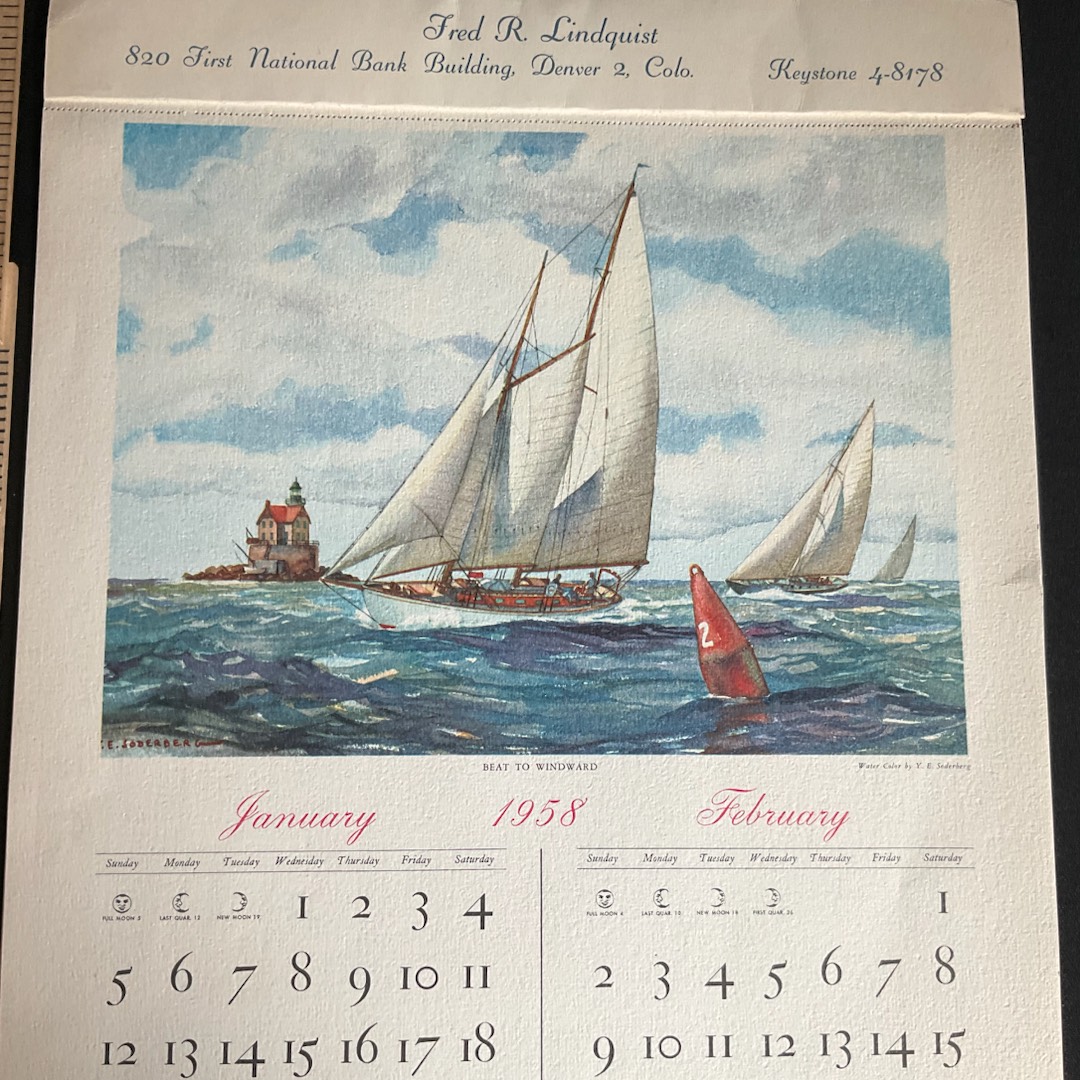 Fred R. Lindquist
820 First National Bank Building, Denver 2, Colo. Keystone 4-8178
2
.E. SODERBERG
BEAT TO WINDWARD
Water Color by Y. E. Soderberg
January 1958 February
Sunday Monday Tuesday Wednesday Thursday Friday Saturday
FULL MOON 5 LAST QUAR. 12 NEW MOON 19 1 2 3 4
5 6 7 8 9 10 11
12 13 14 15 16 17 18
Sunday Monday Tuesday Wednesday Thursday Friday Saturday
FULL MOON 4 LAST QUAR. 10 NEW MOON 18 FIRST QUAR. 26 1
2 3 4 5 6 7 8
9 10 11 12 13 14 15